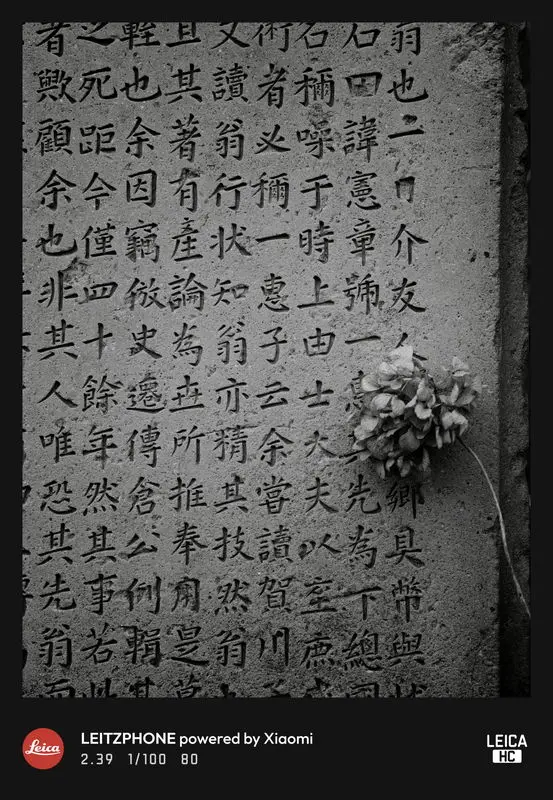 翁也介友人鄉具幣與
石四諱憲章號一其先為下總國
名穪噪于時上由士大夫以至庶
術者必穪一惠子云余嘗讀賀川子
又讀翁行状知翁亦精其技然翁
且其著有產論為世所推奉用是莫
輊也余因竊倣史遷傳倉公例輯其
之死距今僅四十餘年然其事若
者歟顧余也非其人唯恐其先翁而
Leica
LEITZPHONE powered by Xiaomi
2.39 1/100 80
LEICA
HC